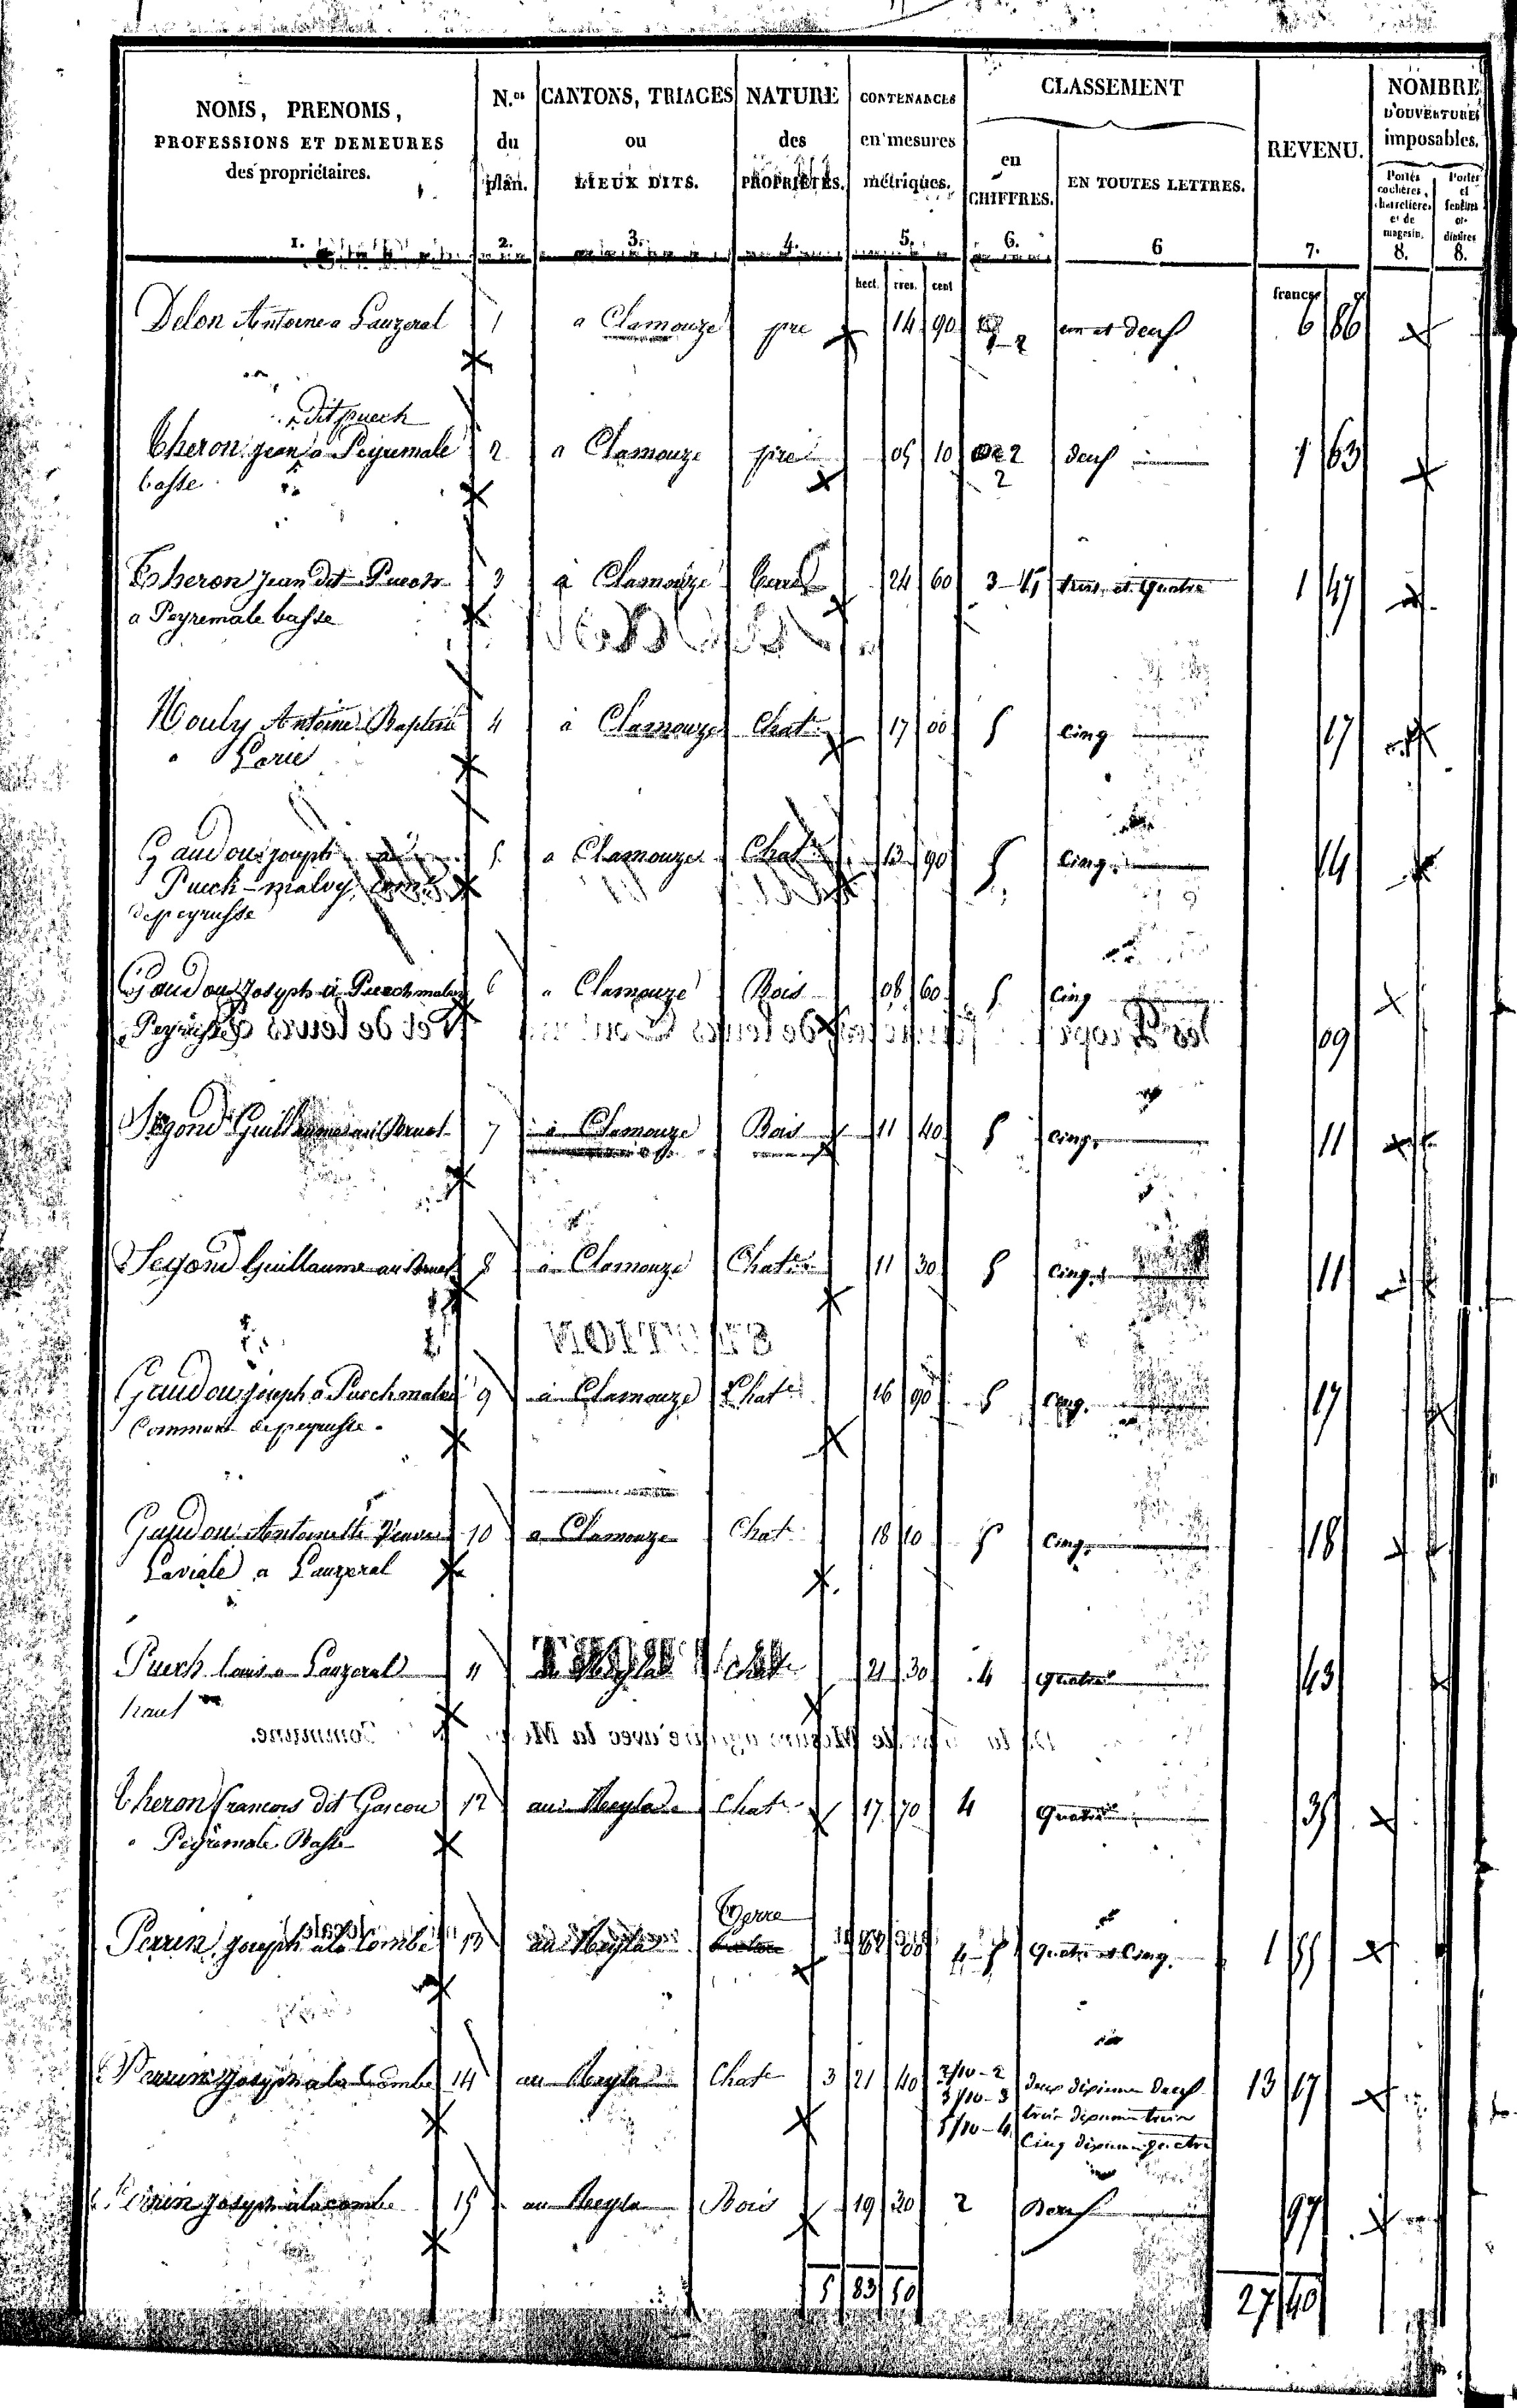 NOMS, PRENOMS, PROFESSIONS ET DEMEURES des propriétaires. 1.
N.os du plan. 2.
CANTONS, TRIAGES ou LIEUX DITS. 3.
NATURE des PROPRIÉTÉS. 4.
CONTENANCES en mesures métriques. 5.
CLASSEMENT
en CHIFFRES. 6.
EN TOUTES LETTRES. 6
REVENU. 7.
NOMBRE D'OUVERTURES imposables.
Portes cochères, charretières et de magasin. 8.
Portes et fenêtres ordinaires 8.
hect. ares. cent francs
Delon Antoine a Lauzeral 1 a Clamouze pre 14 90 1-2 un et deux 6 86
dit puech
Theron jean a Peyremale 2 a Clamouze pre 05 10 2 deux 1 63
basse 2
Theron Jean dit Puech 3 à Clamouze terre 24 60 3-4 trois et Quatre 1 47
a Peyremale basse
Mouly Antoine Baptiste 4 à Clamouze Chat.e 17 00 5 Cinq 17
Gaudou joseph 5 a Clamouze Chat.e 13 90 5 Cinq 14
Puech-malvy
de peyrusse
Gaudou Joseph à Puechmalvy 6 a Clamouze Bois 08 60 5 Cinq 09
Peyrusse
Segond Guillaume au Bruel 7 à Clamouze Bois 11 40 5 Cinq 11
Segond Guillaume au Bruel 8 à Clamouze Chat.e 11 30 5 Cinq 11
Gaudou joseph a Puechmalvi 9 à Clamouze Chat.e 16 90 5 Cinq. 17
Commune de peyrusse.
Gaudou Antoinette Veuve 10 a Clamouze Chat.e 18 10 5 Cinq 18
Laviale a Lauzeral
Puech louis a Lauzeral 11 Chat.e 21 30 4 Quatre 43
haut
Theron francois dit Gascou 12 au Meyla Chat.e 17 70 4 Quatre 35
a Peyremale Basse
Terre
Perrin joseph a la Combe 13 au Meyla 4-5 Quatre et Cinq. 1 55
Perrin Joseph a la Combe 14 au Meyla Chat.e 3 21 40 2/10-2 deux dixieme deux 13 17
3/10-3 trois dixieme trois
5/10-4 Cinq dixieme quatre
Perrin Joseph à la combe 15 au Meyla Bois 19 30 2 Deux 97
5 83 50 27 40